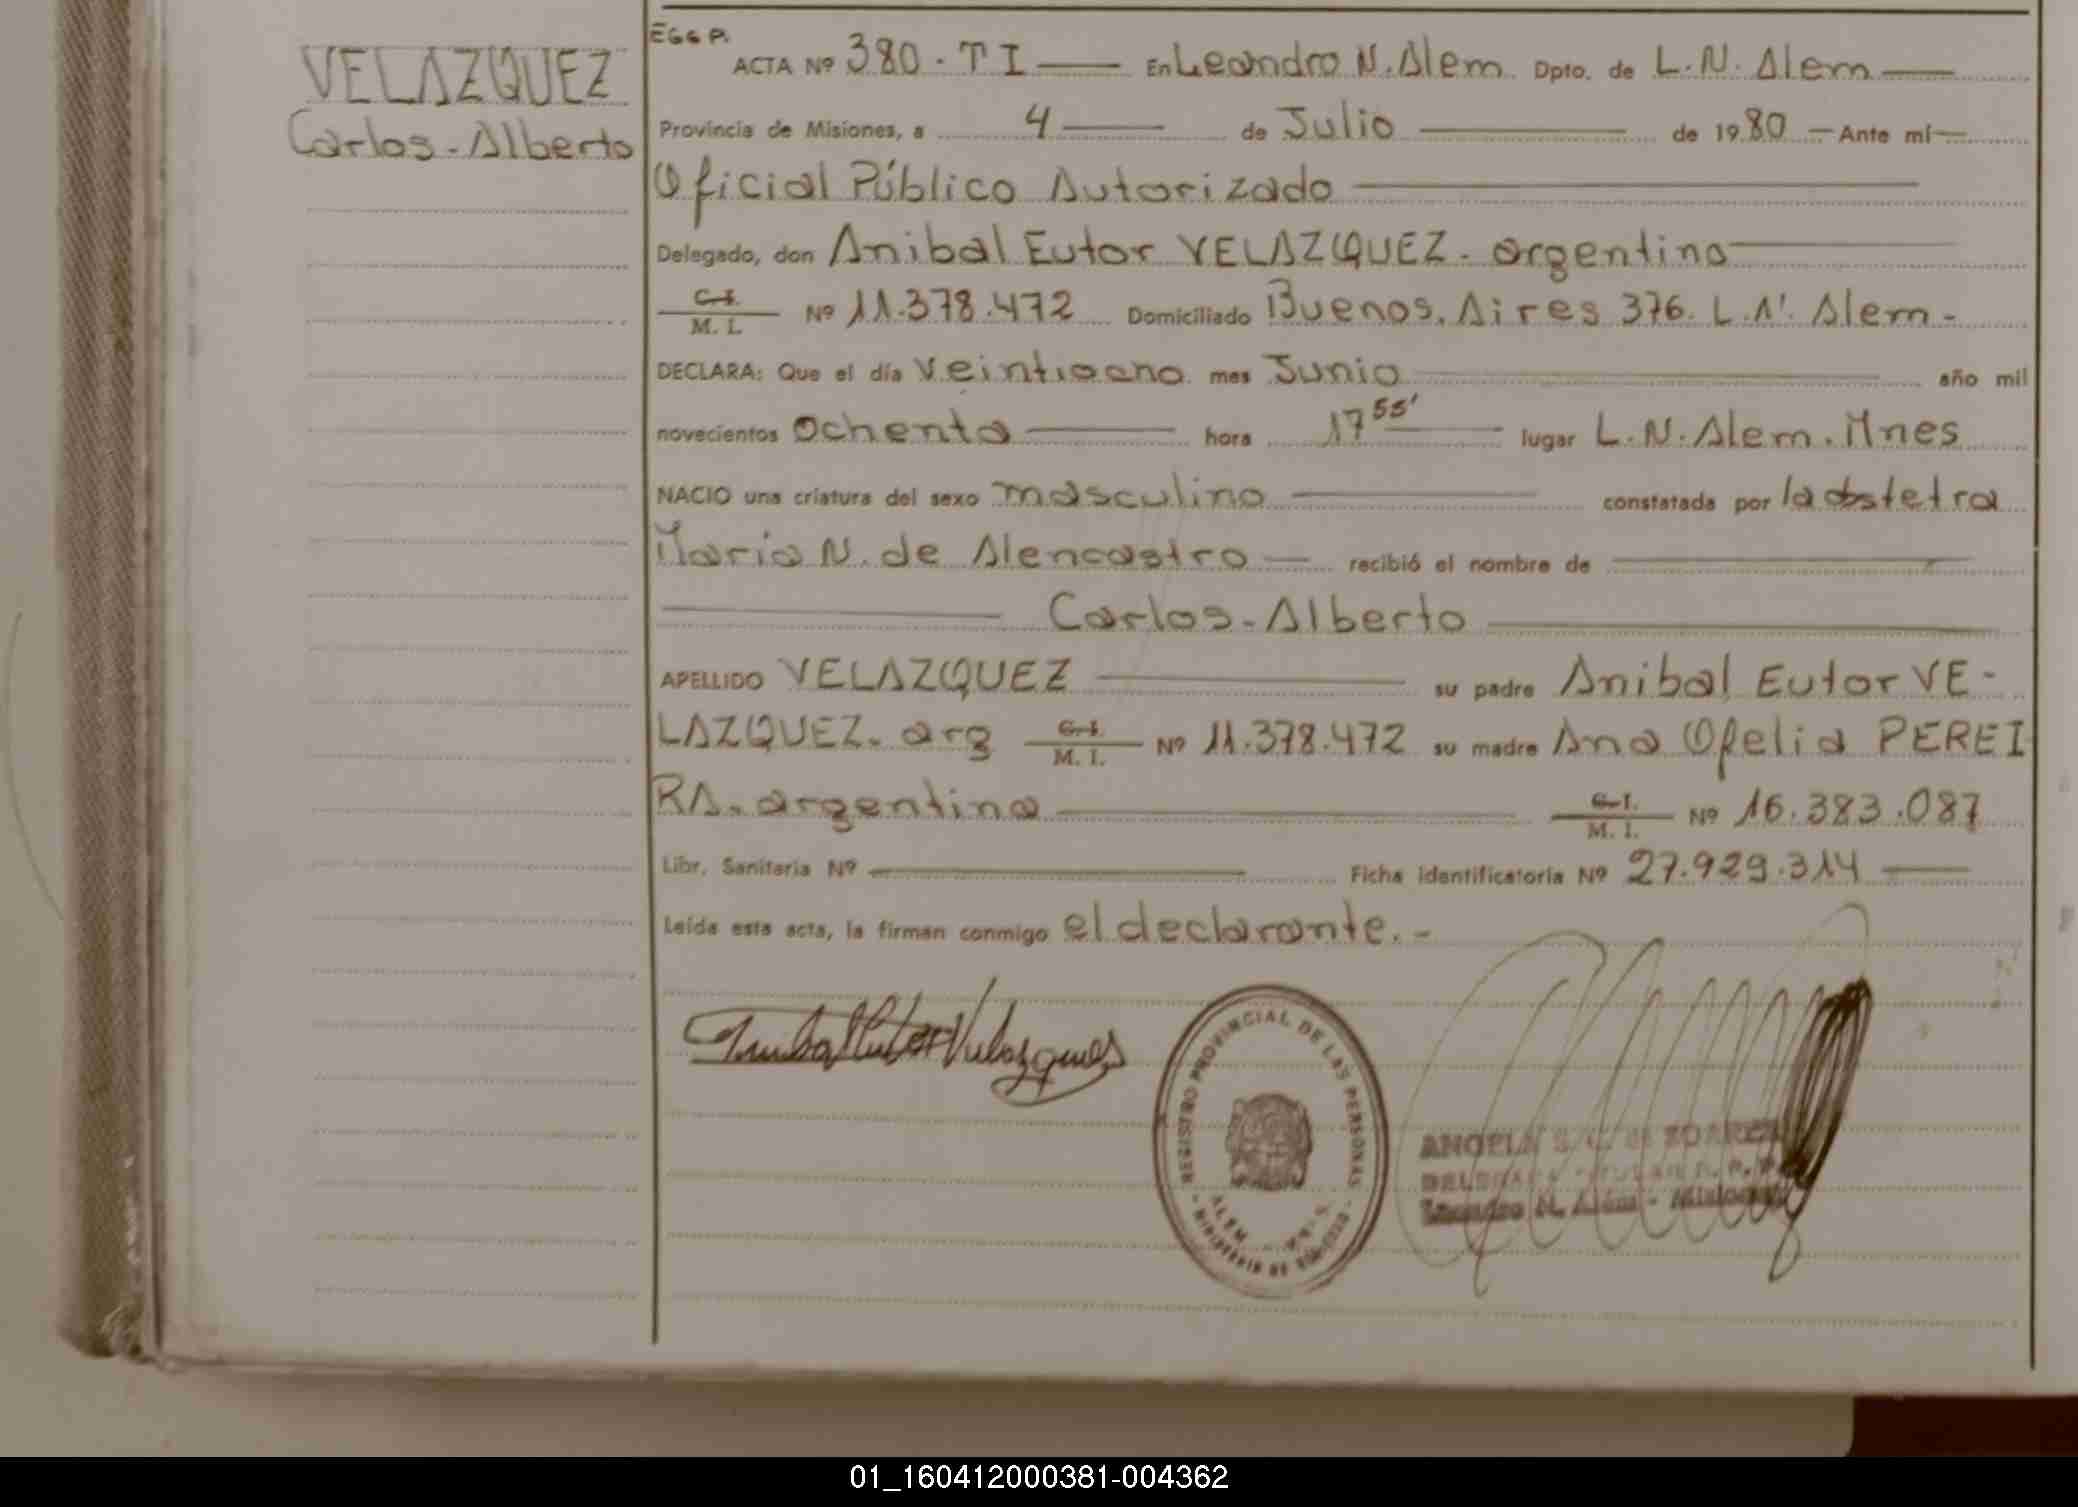 VELAZQUEZ
Carlos-Alberto
EGGP.
ACTA Nº 380. T I En Leandro N. Alem Dpto. de L. N. Alem
Provincia de Misiones, a 4 de Julio de 1980 Ante mí
Oficial Público Autorizado
Delegado, don Anibal Eutor VELAZQUEZ. argentino
C.I. M. I. Nº 11.378.472 Domiciliado Buenos. Aires 376. L.N. Alem-
DECLARA: Que el día veintiocho mes Junio año mil
novecientos Ochenta hora 17 55' lugar L.N. Alem. Mnes
NACIO una criatura del sexo masculino constatada por la obstetra
Maria N. de Alencastro recibió el nombre de
Carlos-Alberto
APELLIDO VELAZQUEZ su padre Anibal Eutor VE-
LAZQUEZ. arg C.I. M. I. Nº 11.378.472 su madre Ana Ofelia PEREI
RA. argentina C.I. M. I. Nº 16.383.087
Libr. Sanitaria Nº Ficha identificatoria Nº 27.929.314
Leída esta acta, la firman conmigo el declarante.-
Anibal Eutor Velazquez
REGISTRO PROVINCIAL DE LAS PERSONAS
ALEM
MINISTERIO DE
ANGELA S.
Leandro N. Alem - Misiones
01_160412000381-004362